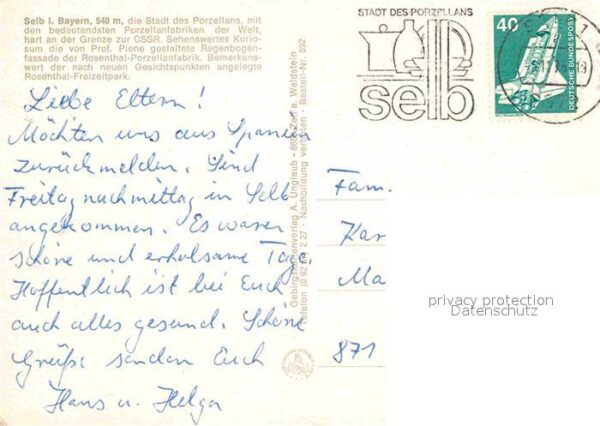 Selb i. Bayern, 540 m, die Stadt des Porzellans, mit
den bedeutendsten Porzellanfabriken der Welt,
hart an der Grenze zur CSSR. Sehenswertes Kurio-
sum die von Prof. Piene gestaltete Regenbogen-
fassade der Rosenthal-Porzellanfabrik. Bemerkens-
wert der nach neuen Gesichtspunkten angelegte
Rosenthal-Freizeitpark.
Liebe Eltern!
Möchten uns aus Spanien
zurückmelden. Sind
Freitag nachmittag in Selb
angekommen. Es waren
schöne und erholsame Tage.
Hoffentlich ist bei Euch
auch alles gesund. Schöne
Grüße senden Euch
Hans u. Helga
Gebirgskartenverlag A. Unglaub - Zell a. Waldstein
Telefon 2 27 - Nachbildung verboten - Bestell-Nr. 892
STADT DES PORZELLANS
selb
40
DEUTSCHE BUNDESPOST
Fam.
Kar
Ma
871
privacy protection
Datenschutz